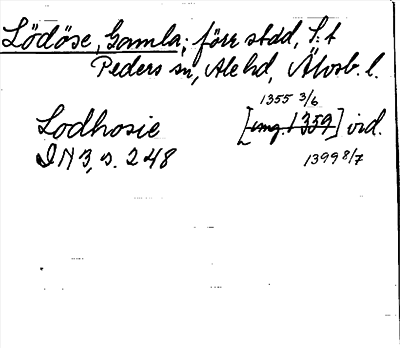 Lödöse, Gamla; förr stdd, S:t
Peders sn, Ale hd, Älvsb. l.
1355 3/6
Lodhosie [omg. 1359] vid.
DN 3, s. 248 1399 8/7